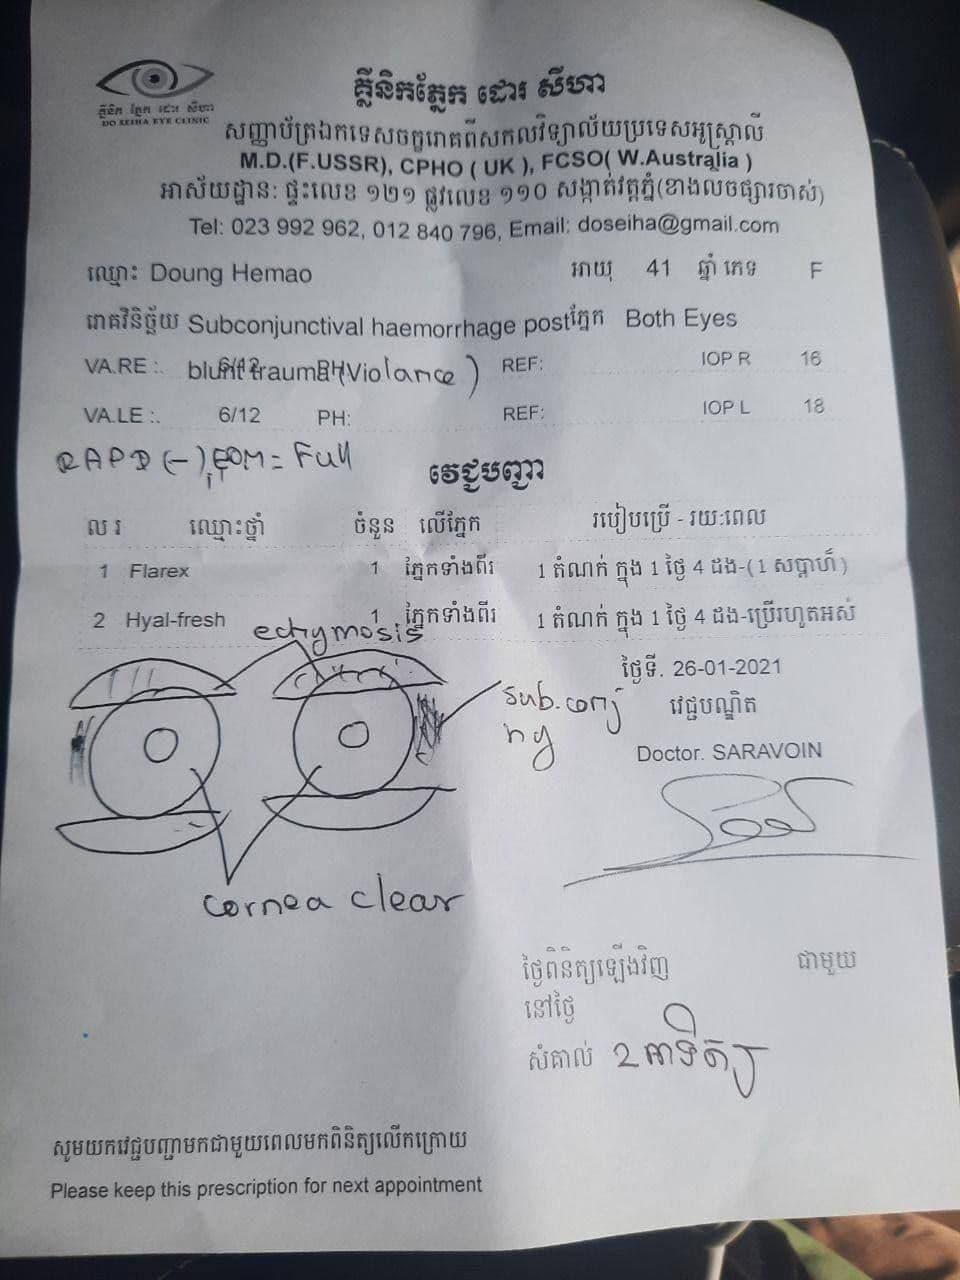 គ្លីនិក ភ្នែក ដោរ សីហា
DO SEIHA EYE CLINIC
គ្លីនិកភ្នែក ដោរ សីហា
សញ្ញាប័ត្រឯកទេសចក្ខុរោគពីសកលវិទ្យាល័យប្រទេសអូស្ត្រាលី
M.D.(F.USSR), CPHO ( UK ), FCSO( W.Australia )
អាស័យដ្ឋាន: ផ្ទះលេខ ១២១ ផ្លូវលេខ ១១០ សង្កាត់វត្តភ្នំ(ខាងលចផ្សារចាស់)
Tel: 023 992 962, 012 840 796, Email: doseiha@gmail.com
ឈ្មោះ Doung Hemao អាយុ 41 ឆ្នាំ ភេទ F
រោគវិនិច្ឆ័យ Subconjunctival haemorrhage post ភ្នែក Both Eyes
VA.RE :. 6/12 PH: blunt trauma (Violance) REF: IOP R 16
VA.LE :. 6/12 PH: REF: IOP L 18
RAPD (-), EOM = Full
វេជ្ជបញ្ជា
ល រ ឈ្មោះថ្នាំ ចំនួន លើភ្នែក របៀបប្រើ - រយ:ពេល
1 Flarex 1 ភ្នែកទាំងពីរ 1 តំណក់ ក្នុង 1 ថ្ងៃ 4 ដង-(1 សប្តាហ៍)
2 Hyal-fresh 1 ភ្នែកទាំងពីរ 1 តំណក់ ក្នុង 1 ថ្ងៃ 4 ដង-ប្រើរហូតអស់
echymosis
ថ្ងៃទី. 26-01-2021
sub.conj
hg
វេជ្ជបណ្ឌិត
Doctor. SARAVOIN
cornea clear
ថ្ងៃពិនិត្យឡើងវិញ ជាមួយ
នៅថ្ងៃ
សំគាល់ ១អាទិត្យ
សូមយកវេជ្ជបញ្ជាមកជាមួយពេលមកពិនិត្យលើកក្រោយ
Please keep this prescription for next appointment